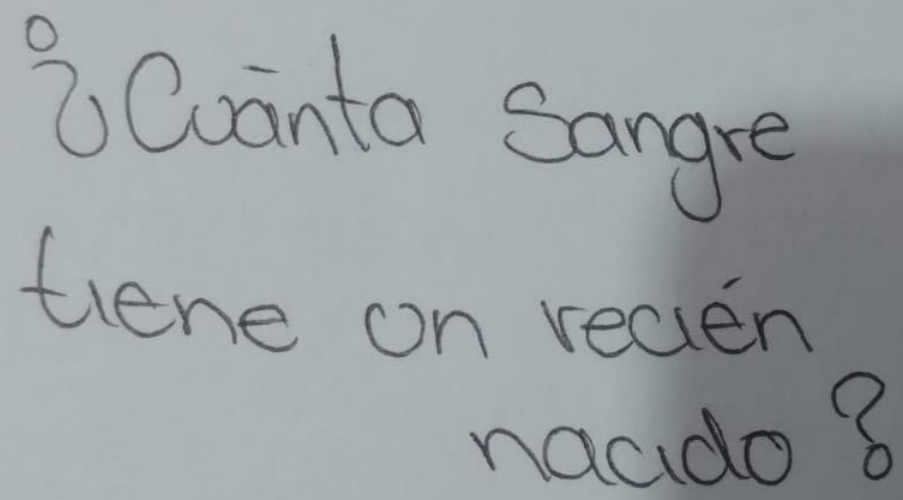 ¿Cuánta Sangre
tiene un recién
nacido?